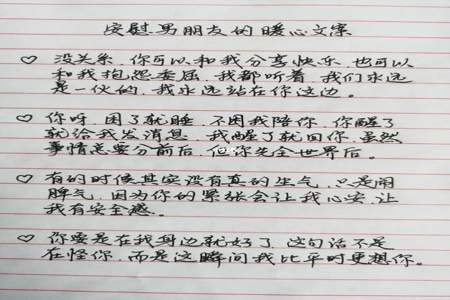 安慰男朋友的暖心文案
♡ 没关系，你可以和我分享快乐，也可以
和我抱怨委屈，我都听着，我们永远
是一伙的，我永远站在你这边。
♡ 你呀，困了就睡，不用我陪你，你醒了
就给我发消息，我醒了就回你，虽然
事情总要分前后，但你先全世界后。
♡ 有的时候其实没有真的生气，只是闹
脾气，因为你的紧张会让我心安，让
我有安全感。
♡ 你要是在我身边就好了，这句话不是
在怪你，而是这瞬间我比平时更想你。